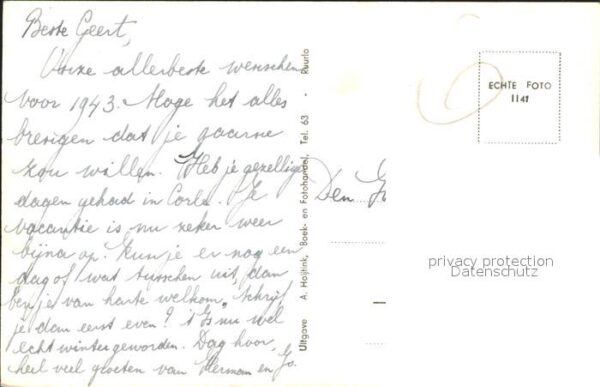 Beste Geert,
Onze allerbeste wenschen
voor 1943. Moge het alles
brengen dat je gaarne
zou willen. Heb je gezellige
dagen gehad in Corle. Je
vacantie is nu zeker weer
bijna op. Kun je er nog een
dag of wat tusschen uit, dan
ben je van harte welkom. Schrijf
je dan eerst even? 't Is nu wel
echt winter geworden. Dag hoor,
heel veel groeten van Herman en Jo.
Uitgave A. Hoijtink, Boek- en Fotohandel, Tel. 63 - Ruurlo
ECHTE FOTO
1141
Den
privacy protection
Datenschutz